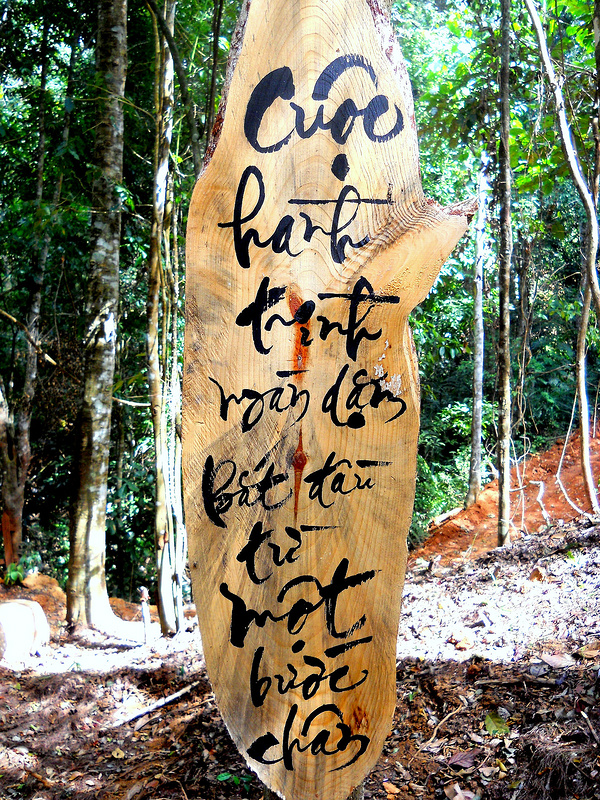 Cuộc
hành
trình
ngàn dặm
bắt đầu
từ
một
bước
chân